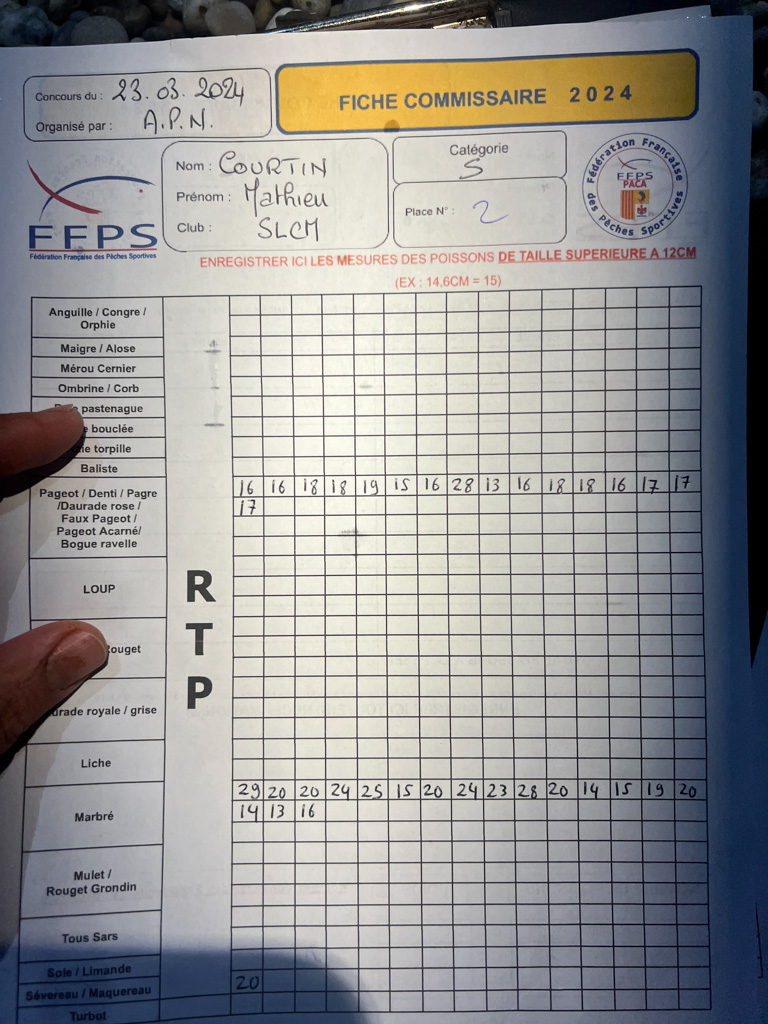 Concours du : 23.03.2024
Organisé par : A.P.N.
FICHE COMMISSAIRE 2024
Nom : COURTIN
Prénom : Mathieu
Club : SLCM
Catégorie
S
Place N° : 2
Fédération Française des Pêches Sportives
FFPS
PACA
FFPS
Fédération Française des Pêches Sportives
ENREGISTRER ICI LES MESURES DES POISSONS DE TAILLE SUPERIEURE A 12CM
(EX : 14,6CM = 15)
Anguille / Congre /
Orphie
Maigre / Alose
Mérou Cernier
Ombrine / Corb
pastenague
bouclée
torpille
Baliste
Pageot / Denti / Pagre
/Daurade rose /
Faux Pageot /
Pageot Acarné/
Bogue ravelle
16 16 18 18 19 15 16 28 13 16 18 18 16 17 17
17
LOUP
Rouget
royale / grise
Liche
R
T
P
Marbré
29 20 20 24 25 15 20 24 23 28 20 14 15 19 20
14 13 16
Mulet /
Rouget Grondin
Tous Sars
Sole / Limande
Sévereau / Maquereau
20
Turbot